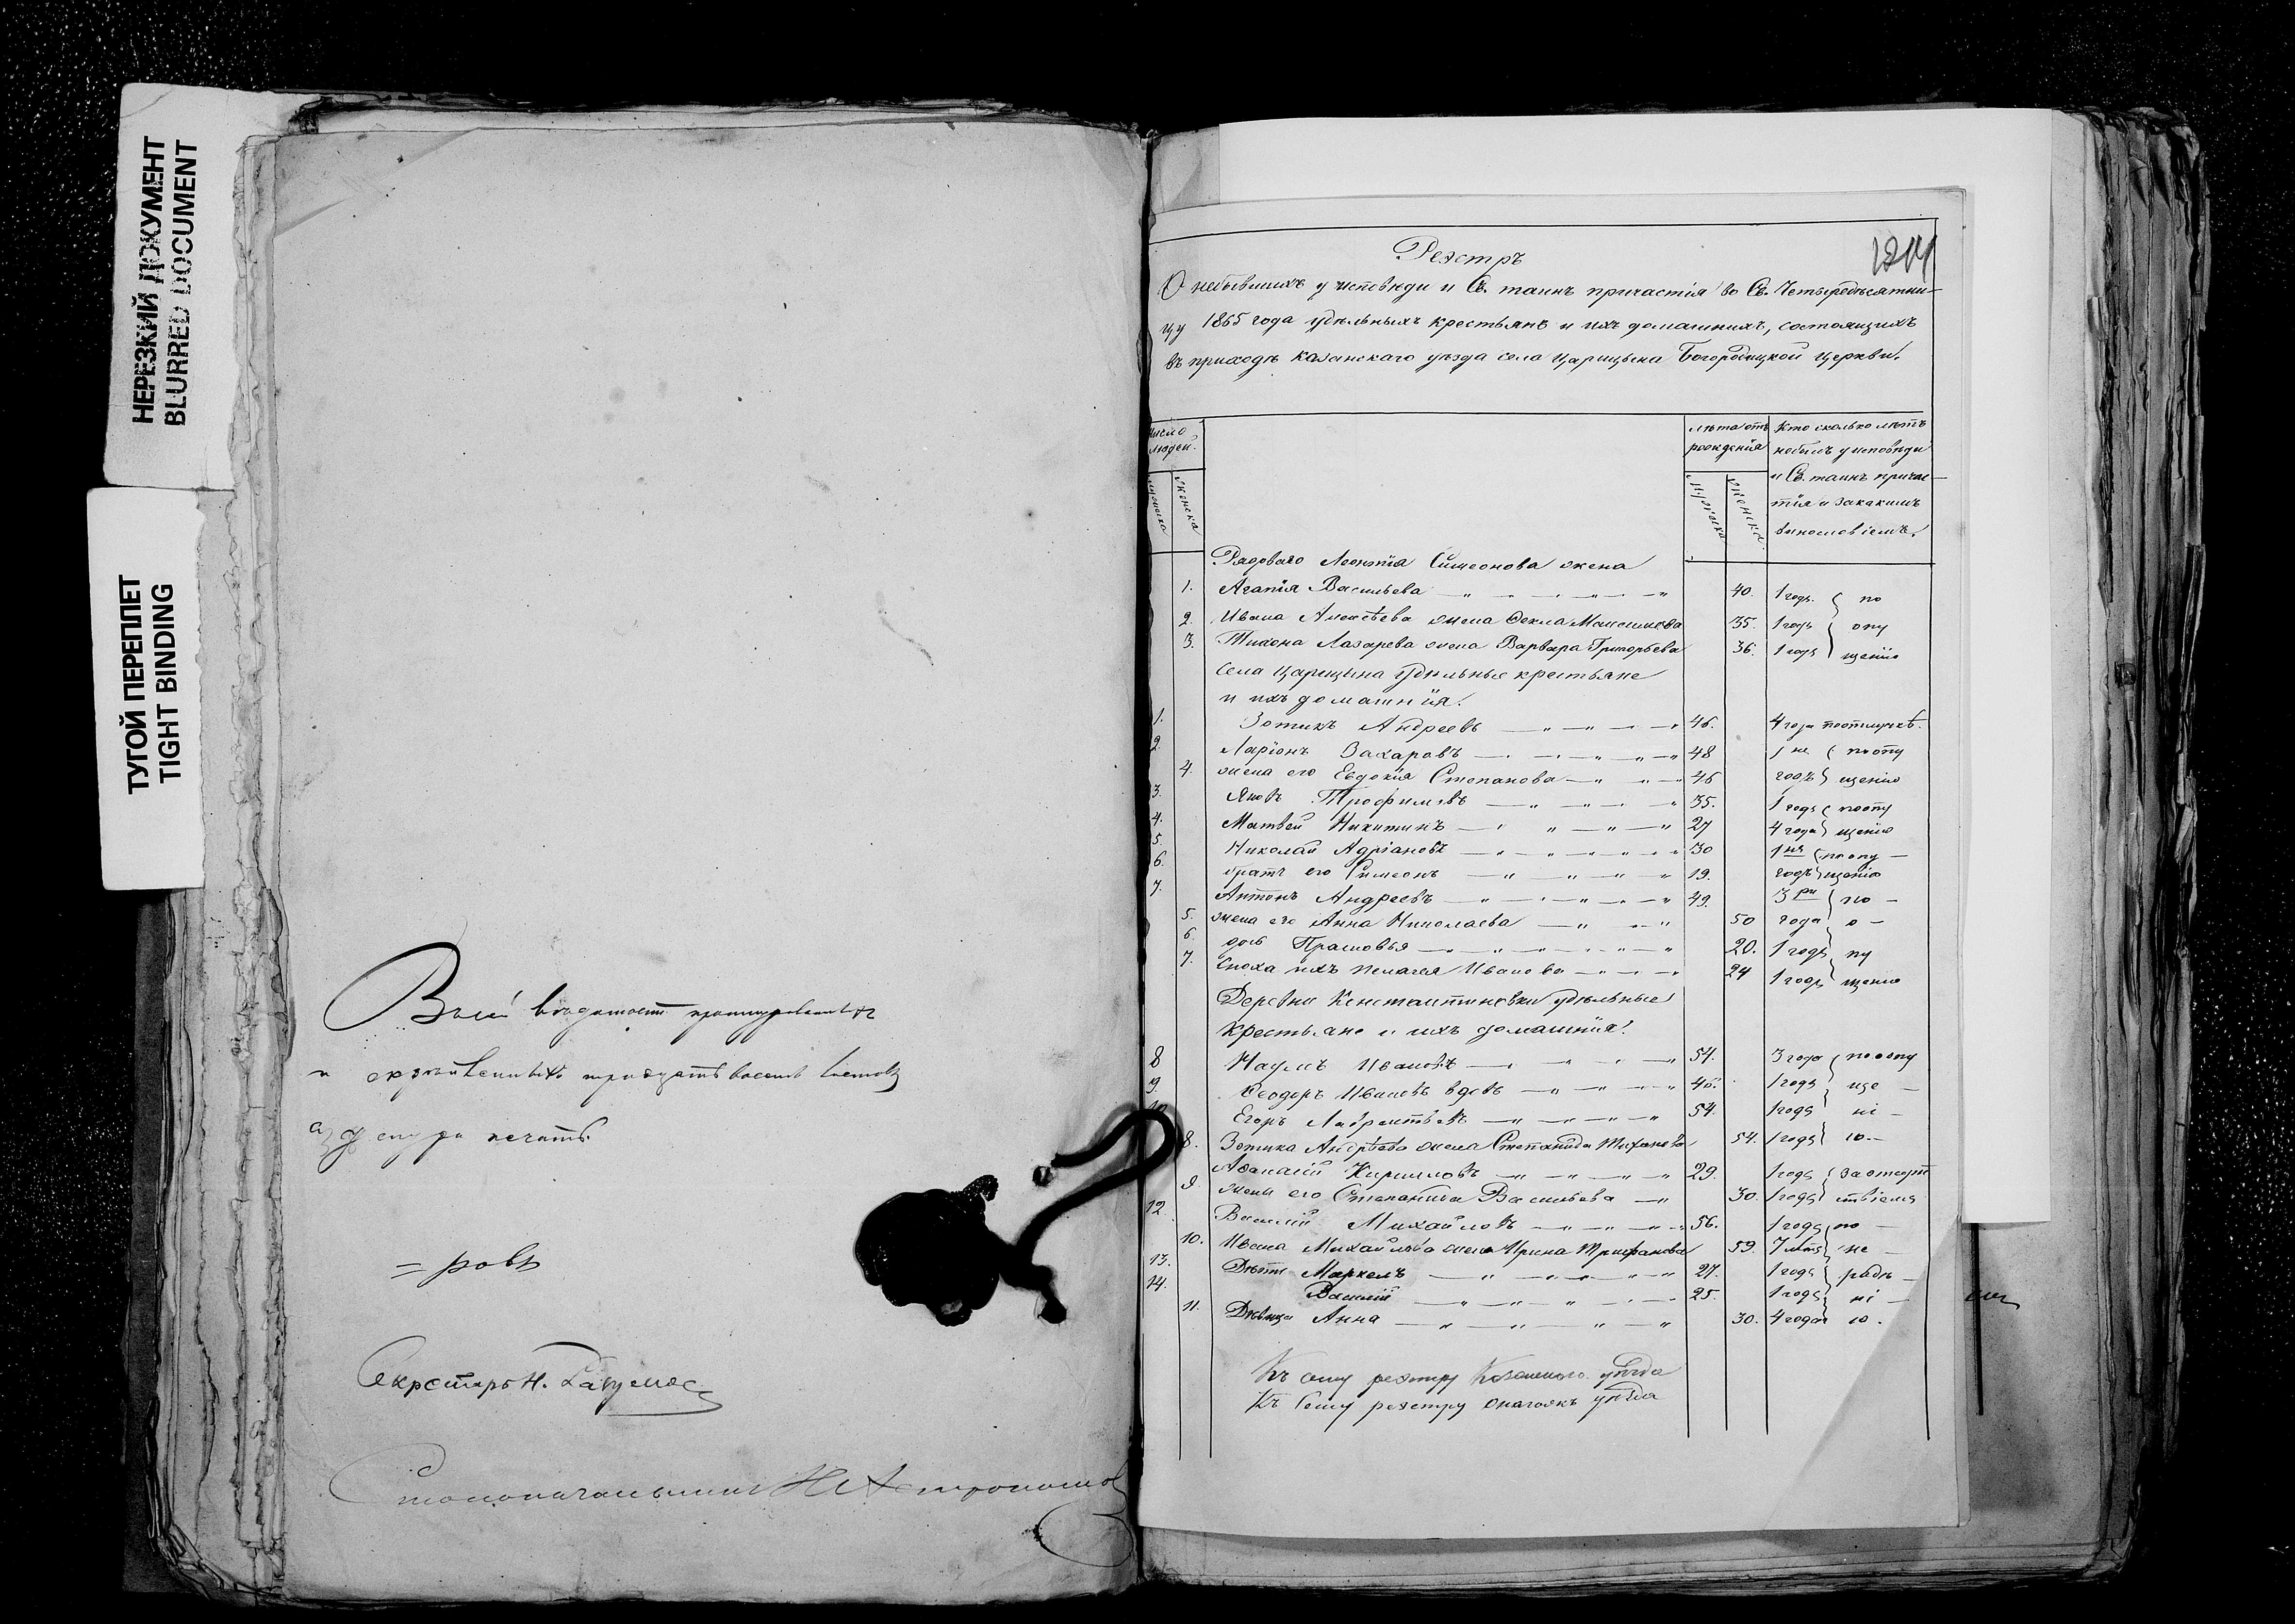 НЕРЕЗКИЙ ДОКУМЕНТ
BLURRED DOCUMENT
ТУГОЙ ПЕРЕПЛЕТ
TIGHT BINDING
Всей
и скрѣпленныхъ тридцать восемь листовъ
печать.
= ровъ
Секретарь Н.
Столоначальникъ
1204
Реэстръ
О небывшихъ у исповѣди и Св. таинъ причастія во Св. Четыредесятни-
цу 1865 года удѣльныхъ крестьянъ и ихъ домашнихъ, состоящихъ
въ приходѣ Казанскаго уѣзда села Царицына Богородицкой церкви.
Число людей.
мужеска
женска
лѣта отъ рожденія
мужска
женска
Кто сколько лѣтъ
небылъ у исповѣди
и Св. таинъ причас-
тія и за какимъ
винословіемъ.
Рядоваго Леонтія Симеонова жена
1. Агапія Васильева 40. 1 годъ. по
2. Ивана Алексѣева жена Фекла Максимова 35. 1 годъ опу
3. Тихона Лазарева жена Варвара Григорьева 36. 1 годъ щенію
Села Царицына Удѣльные крестьяне
и ихъ домашнія.
1. Зотикъ Андреевъ 46. 4 года по отлучкѣ.
2. Ларіонъ Захаровъ 48 1 не по опу
4. жена его Евдокія Степанова 46 годъ щенію
3. Яковъ Трофимовъ 35. 1 годъ по опу
4. Матвей Никитинъ 27 4 года щенію
5. Николай Адріановъ 30 1 по опу—
6. братъ его Симеонъ 19. годъ щенію
7. Антонъ Андреевъ 49. 3 ри по —
5. жена его Анна Николаева 50 года о —
6. дочь Прасковья 20. 1 годъ пу
7. Сноха ихъ Пелагея Иванова 24 1 годъ щенію
Деревни Константиновки удѣльные
крестьяне и ихъ домашнія.
8 Наумъ Ивановъ 54. 3 года по опу
9. Ѳеодоръ Ивановъ вдовъ 46. 1 годъ ще —
10. Егоръ Лаврентьевъ 54. 1 годъ ні —
8. Зотика Андрѣева жена Степанида Тихонова 54. 1 годъ ю.—
Аѳанасій Кирилловъ 29. 1 годъ за отсут
9 жена его Степанида Васильева 30. 1 годъ ствіемъ
12. Василій Михайловъ 56. 1 годъ по —
10. Ивана Михайлова жена Ирина Трифонова 59. 7 лѣтъ не —
13. Дѣти Маркелъ 27. 1 годъ радѣ —
14. Василій 25. 1 годъ ні —
11. Дѣвица Анна 30. 4 года ю.
Къ сему реэстру Казанскаго уѣзда
Къ Сему реэстру уѣзда